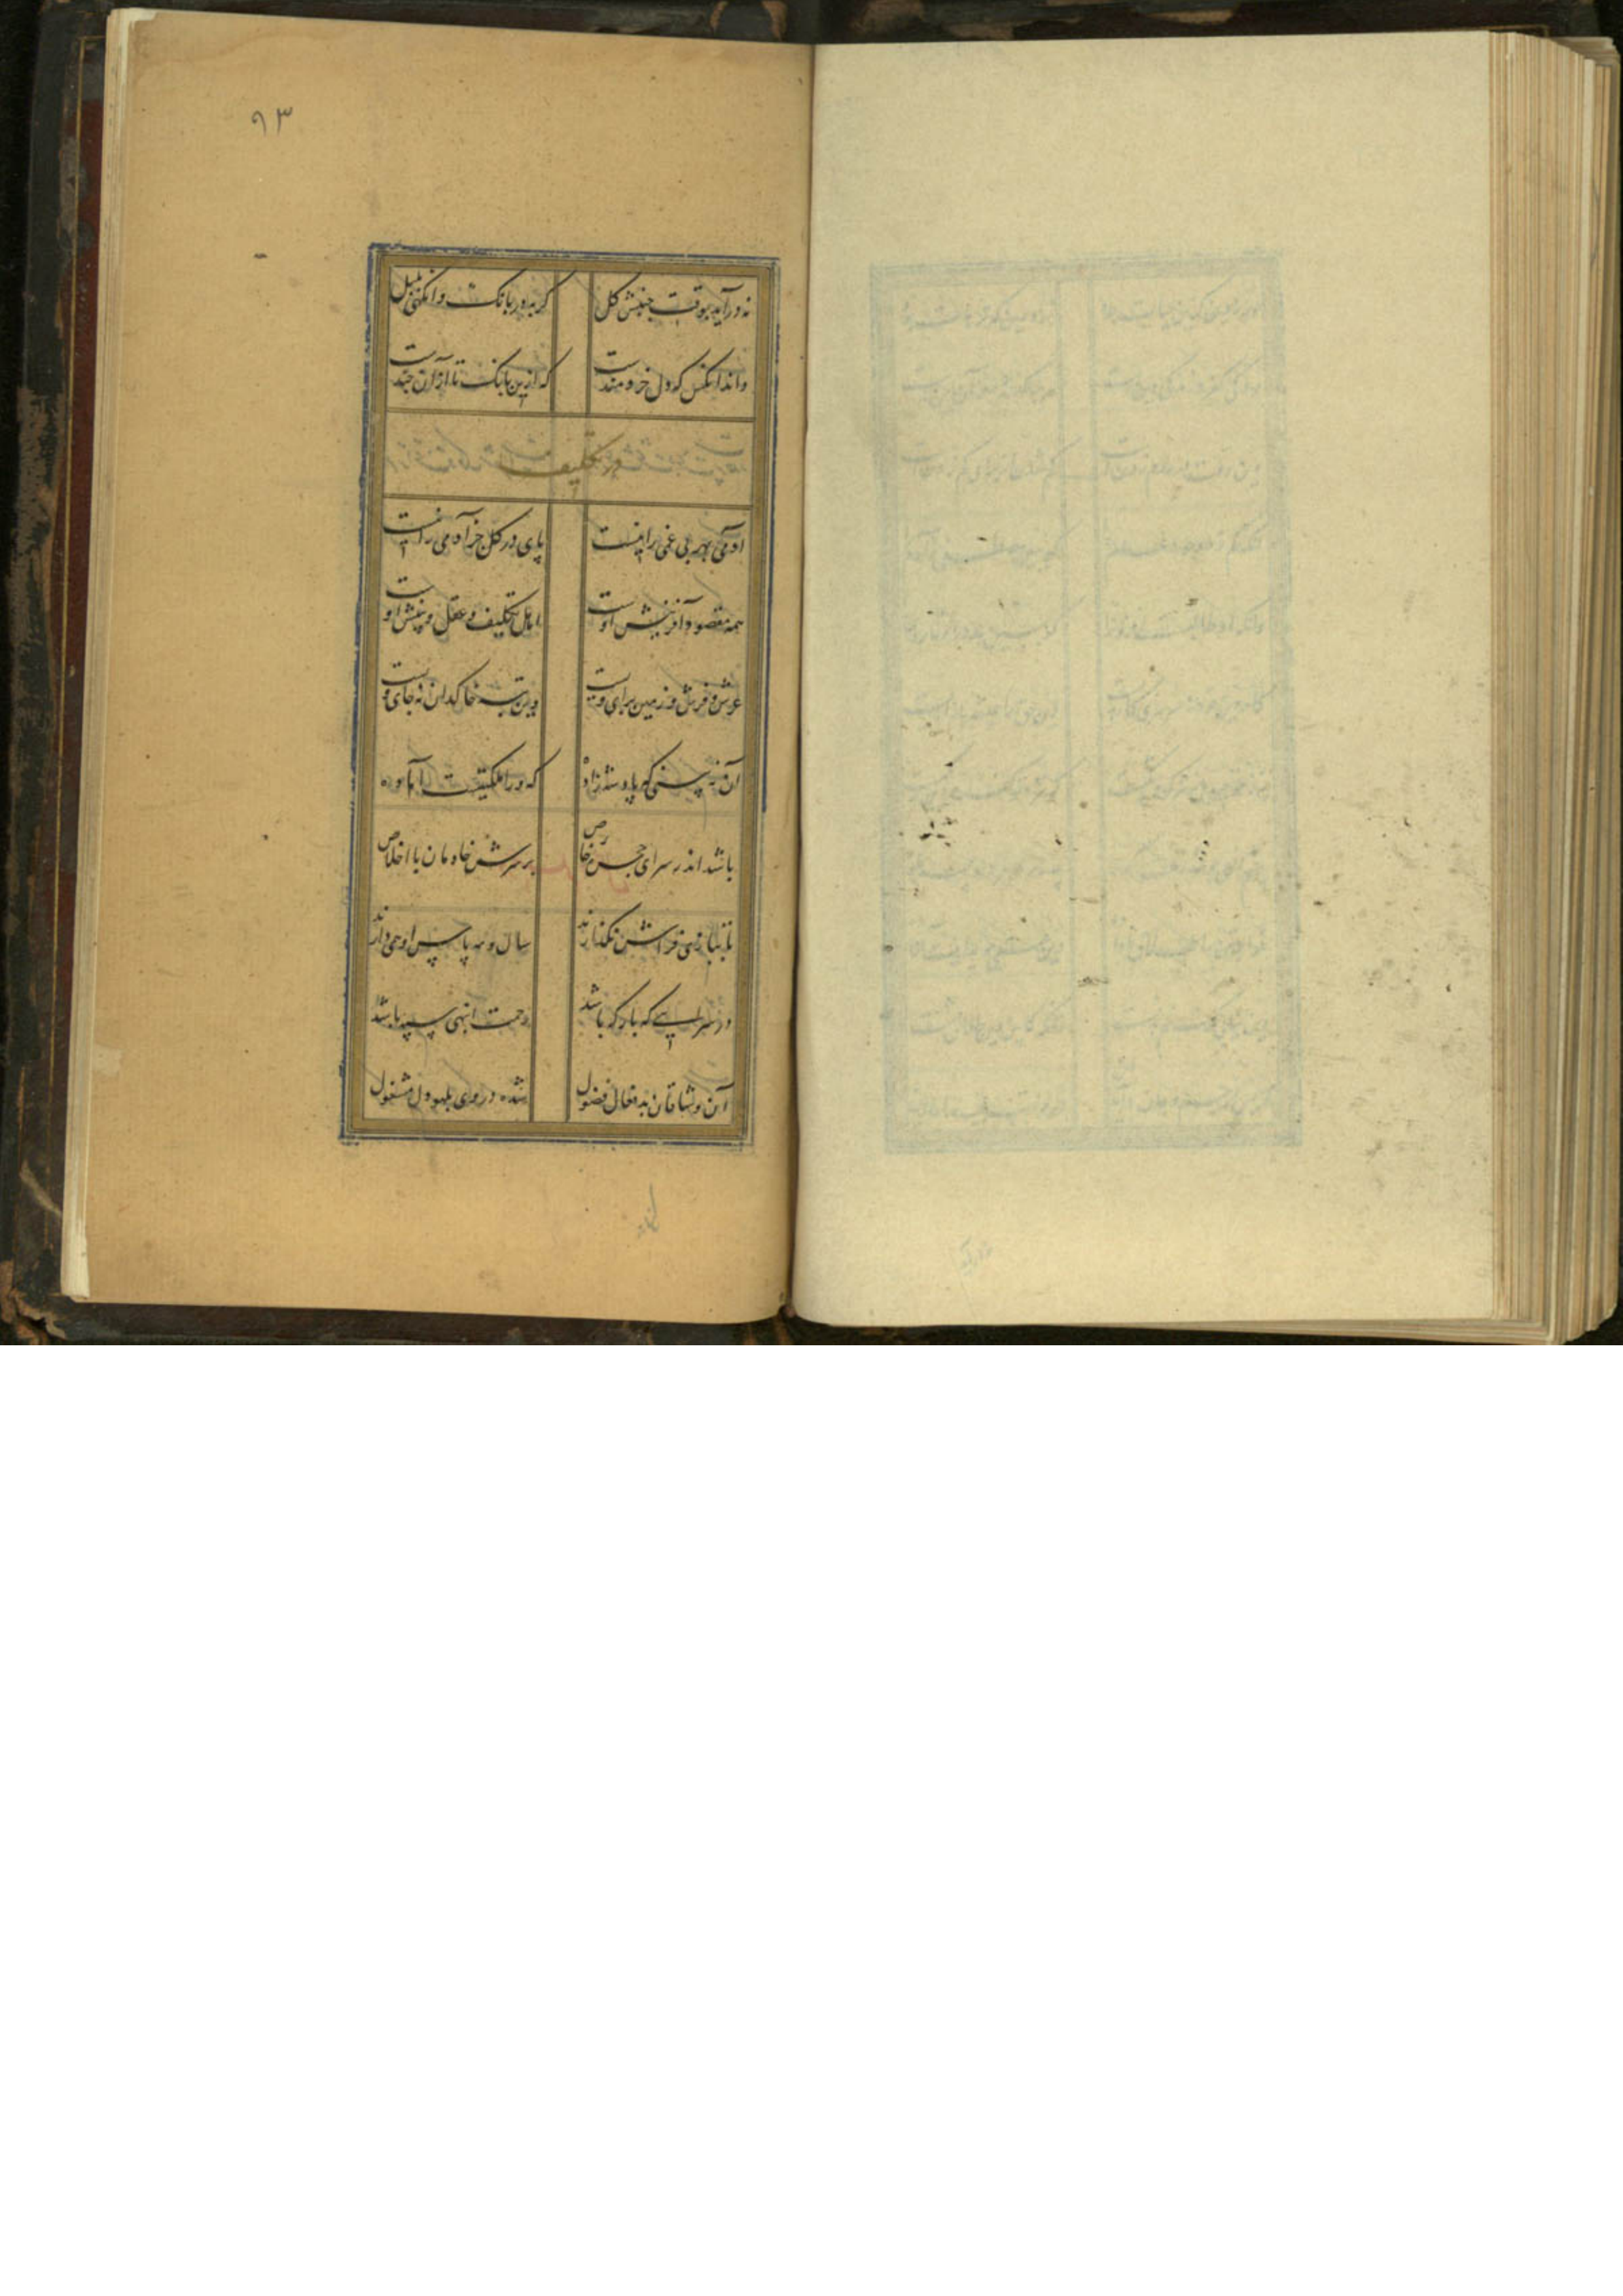 ۹۳
نه درآید بوقت جنبش گل گربه در بانگ وانگهی بلبل
داند آنکس که دل خردمندست که ازین بانگ تا از آن چندست
در تکلیف
آدمی بهر بی غمی را نیست پای در گل جز آدمی را نیست
همه مقصود آفرینش اوست اهل تکلیف و عقل و بینش اوست
عرش و فرش و زمین برای ویست وین تبه خاکدان نه جای ویست
آن نه بینی که پادشه زاده که ورا ملکتیست آماده
باشد اندر سرای حرص خاص بر سرش خادمان با اخلاص
تا ببازی فراترش نگذارند سال و مه پاس او همی دارند
در سرایی که بارگه باشد زحمت انبهی سپه باشد
آن وشاقان بدفعال فضول شده در وی بلهو دل مشغول